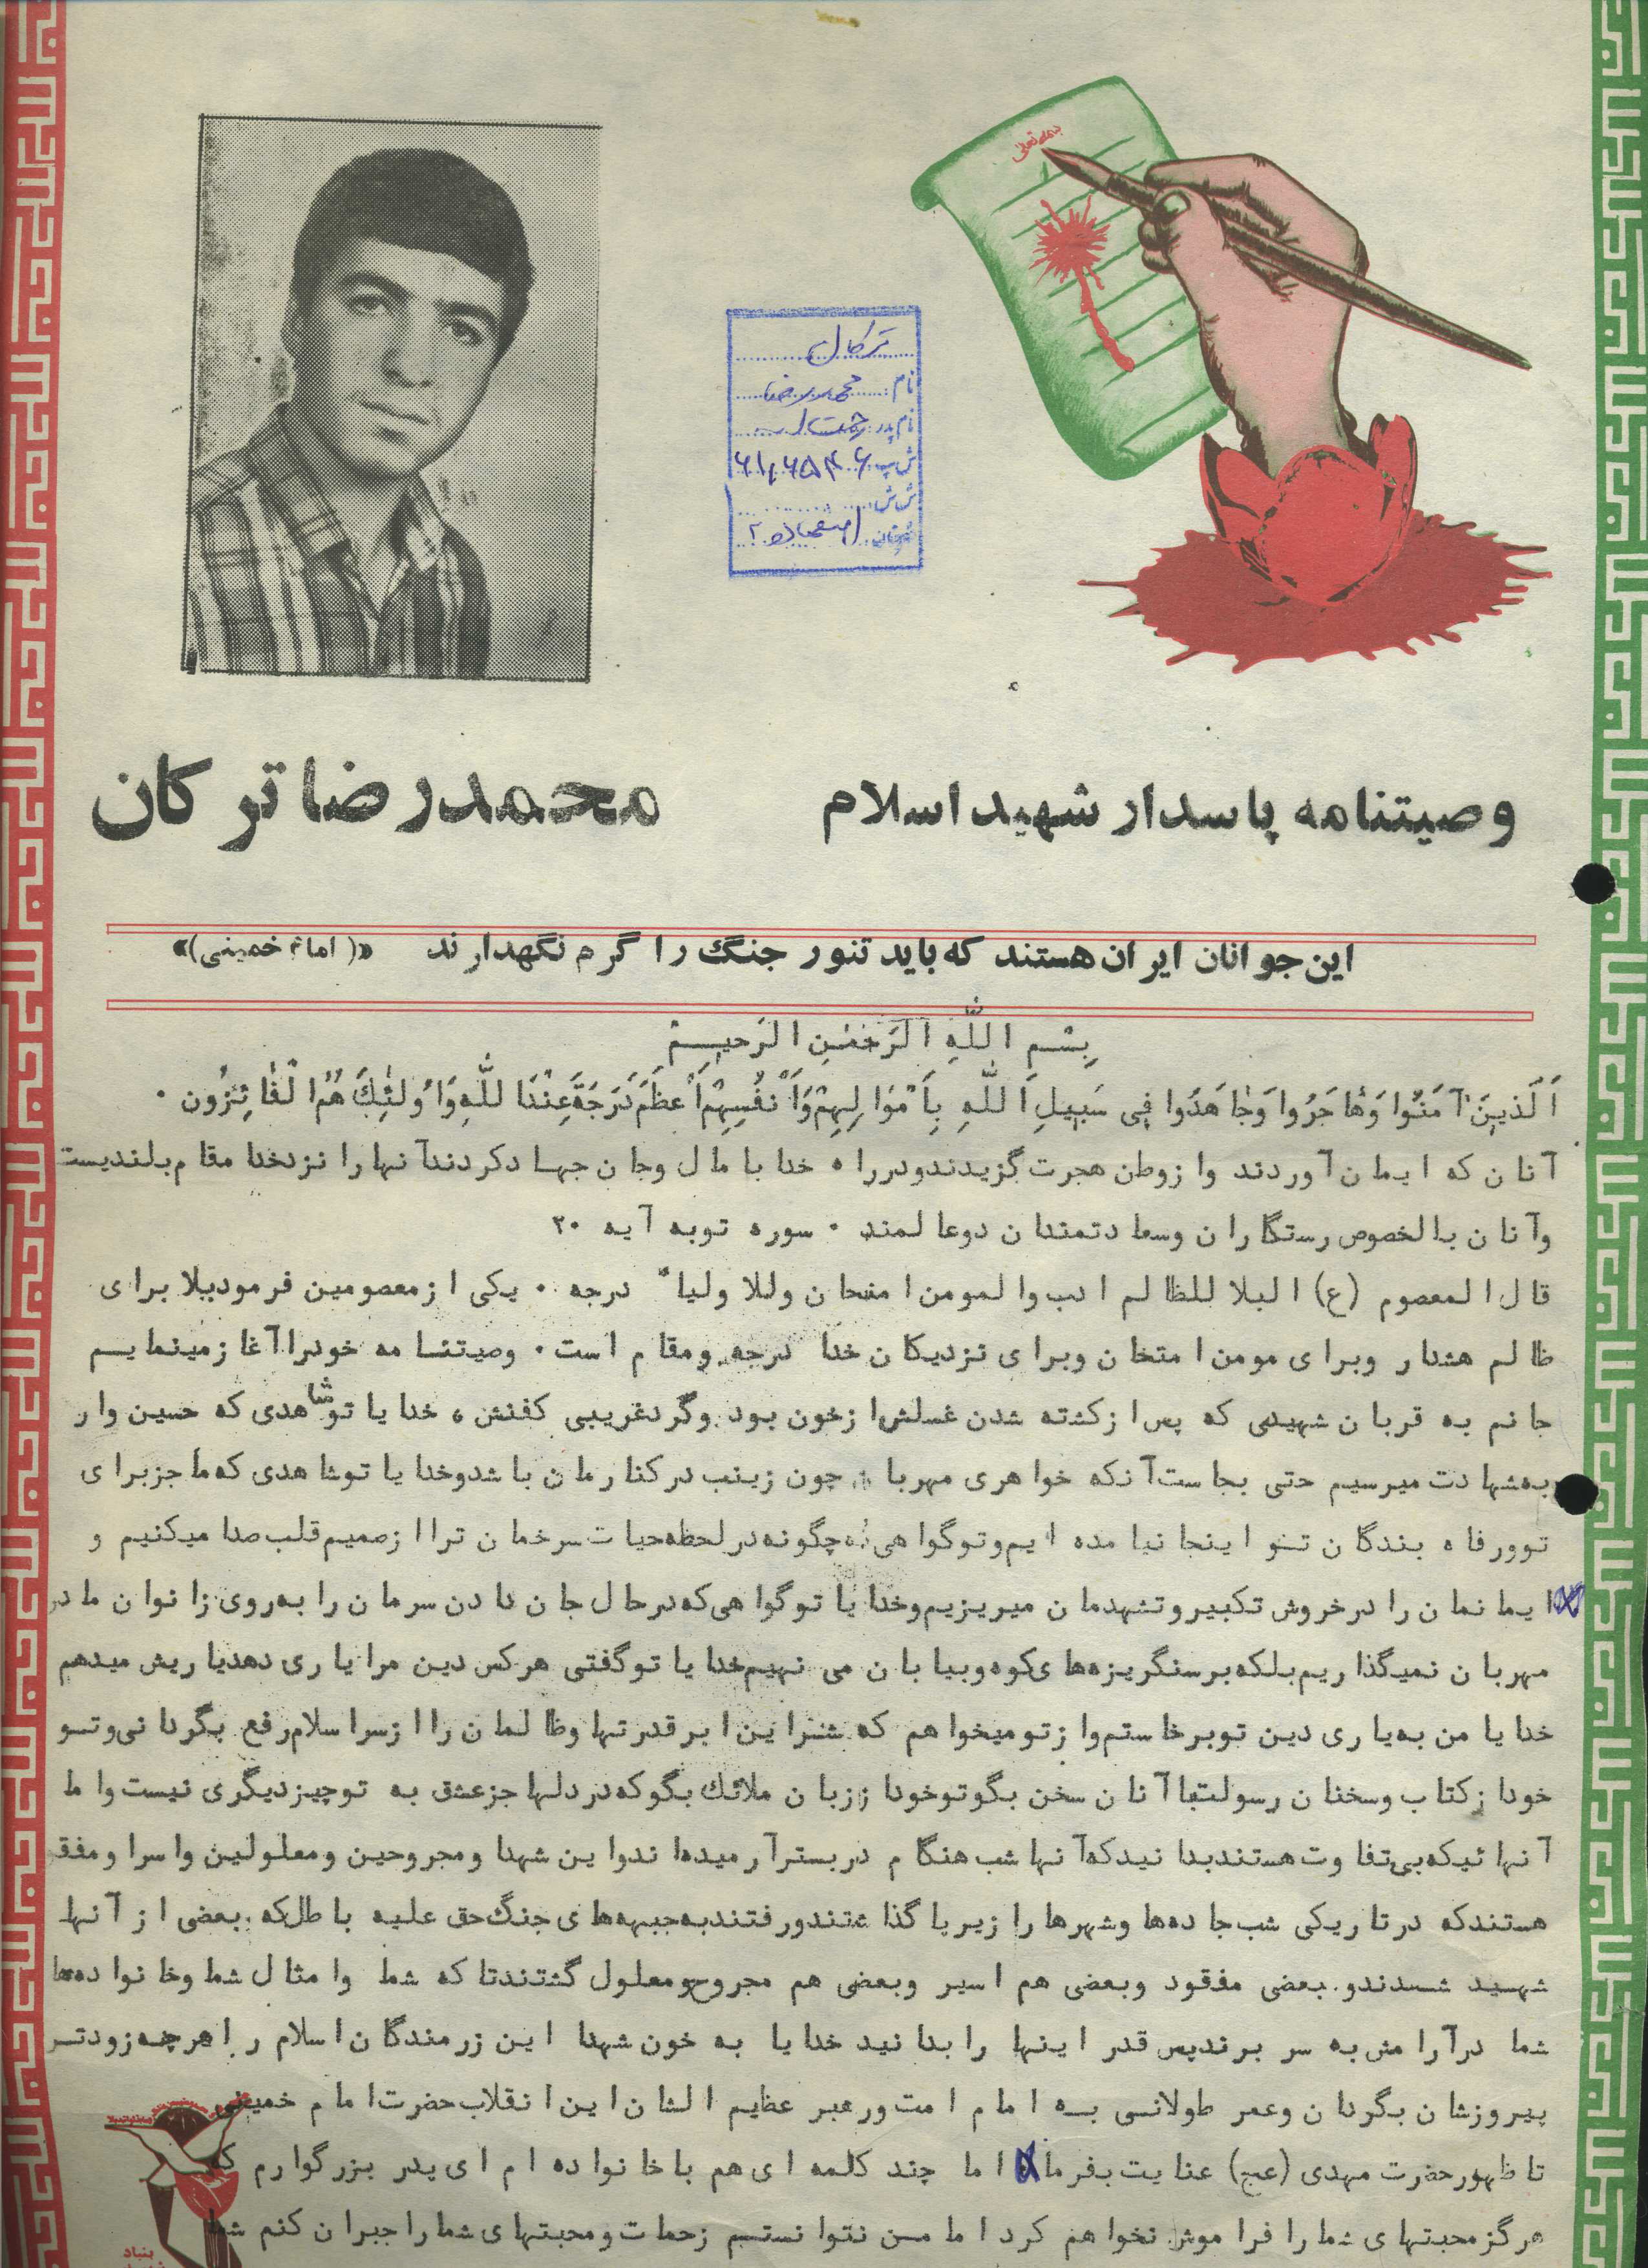 بسمه تعالی
ترکان
نام: محمدرضا
نام پدر: رحمت اله
ش پ: ۶۱۱۶۵۴۰۶
ش ش:
شهرستان: اصفهان ۲
وصیتنامه پاسدار شهید اسلام محمدرضا ترکان
این جوانان ایران هستند که باید تنور جنگ را گرم نگهدارند «(امام خمینی)»
بِسْمِ اللّهِ الرَحْمٰنِ الرَحیمْ
اَلَذینَ آمَنُوا وَهٰاجَرُوا وَجٰاهَدُوا فِی سَبیلِ اَللّهِ بِاَمْوٰالِهِمْ وَاَنْفُسِهِمْ اَعْظَمُ دَرَجَةً عِنْدَ اللّهِ وَاُولئِکَ هُمُ الْفٰائِزُون ۰
آنان که ایمان آوردند و از وطن هجرت گزیدند و در راه خدا با مال و جان جهاد کردند آنها را نزد خدا مقام بلندیست
و آنان بالخصوص رستگاران و سعادتمندان دو عالمند ۰ سوره توبه آیه ۲۰
قال المعصوم (ع) البلا للظالم ادب و المومن امتحان و للاولیاء درجه ۰ یکی از معصومین فرمود بلا برای
ظالم هشدار و برای مومن امتحان و برای نزدیکان خدا درجه و مقام است ۰ وصیتنامه خود را آغاز مینمایم
جانم به قربان شهیدی که پس از کشته شدن غسلش از خون بود و گرد غریبی کفنش ه خدایا تو شاهدی که حسین وار
به شهادت میرسیم حتی بجاست آنکه خواهری مهربان چون زینب در کنارمان باشد و خدایا تو شاهدی که ما جز برای
تو و رفاه بندگان تو اینجا نیامده ایم و تو گواهی که چگونه در لحظه حیات سرخمان ترا از صمیم قلب صدا میکنیم و
ایمانمان را در خروش تکبیر و تشهدمان میریزیم و خدایا تو گواهی که در حال جان دادن سرمان را به روی زانوان مادر
مهربان نمیگذاریم بلکه بر سنگریزه های کوه و بیابان می نهیم خدایا تو گفتی هر کس دین مرا یاری دهد یاریش میدهم
خدایا من به یاری دین تو برخاستم و از تو میخواهم که شر این ابرقدرتها و ظالمان را از سر اسلام رفع بگردانی و تو
خود از کتاب و سخنان رسولت با آنان سخن بگو تو خود از زبان ملائک بگو که در دلها جز عشق به تو چیز دیگری نیست و اما
آنهائیکه بی تفاوت هستند بدانید که آنها شب هنگام در بستر آرمیده اند و این شهدا و مجروحین و معلولین و اسرا و مفقو
هستند که در تاریکی شب جاده ها و شهرها را زیر پا گذاشتند و رفتند به جبهه های جنگ حق علیه باطل که بعضی از آنها
شهید شدند و بعضی مفقود و بعضی هم اسیر و بعضی هم مجروح و معلول گشتند تا که شما و امثال شما و خانواده های
شما در آرامش به سر برند پس قدر اینها را بدانید خدایا به خون شهدا این رزمندگان اسلام را هرچه زودتر
پیروزشان بگردان و عمر طولانی به امام امت و رهبر عظیم الشان این انقلاب حضرت امام خمینی
تا ظهور حضرت مهدی (عج) عنایت بفرما اما چند کلمه ای هم با خانواده ام ای پدر بزرگوارم که
هرگز محبتهای شما را فراموش نخواهم کرد اما من نتوانستم زحمات و محبتهای شما را جبران کنم شما
بنیاد